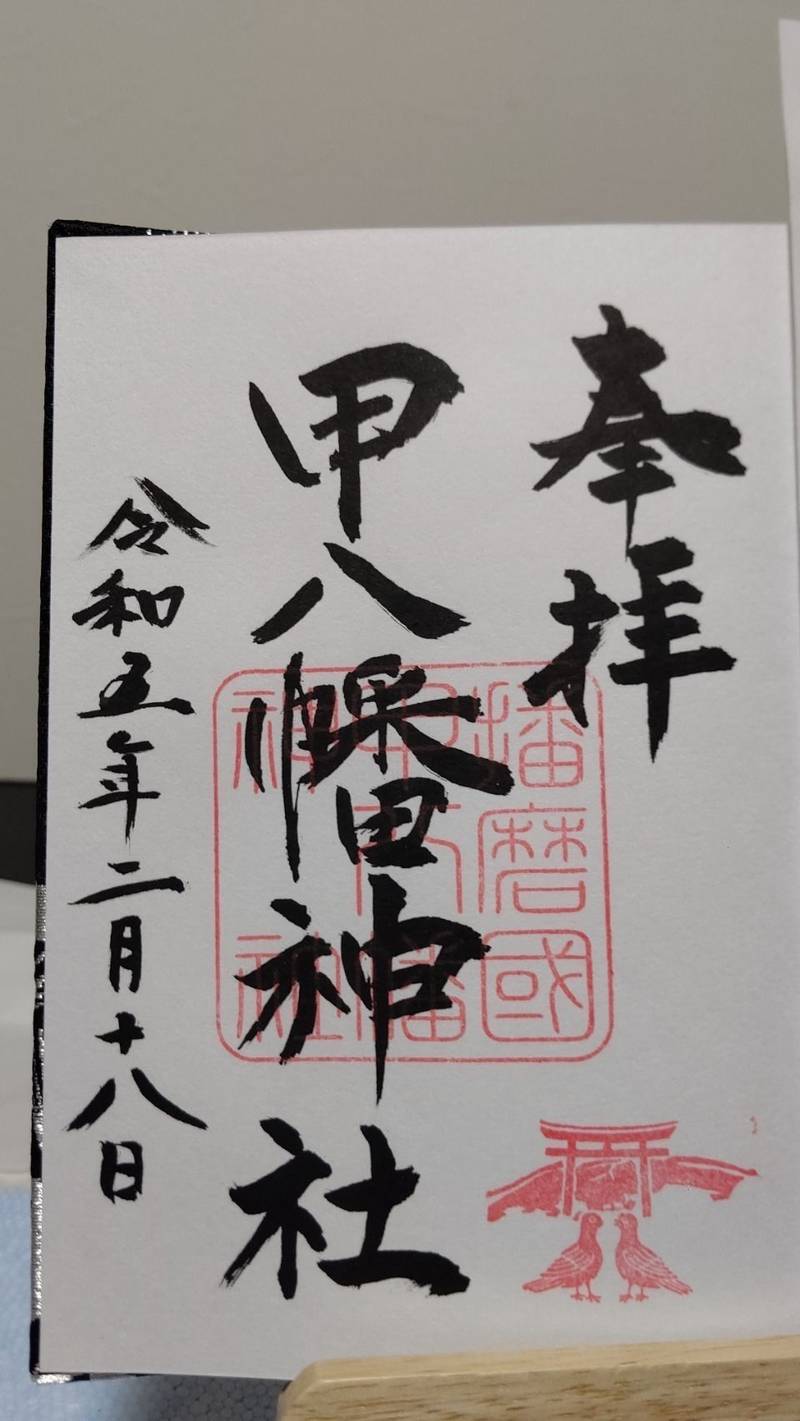 奉拝
甲八幡神社
令和五年二月十八日
播磨國
甲八幡
神社